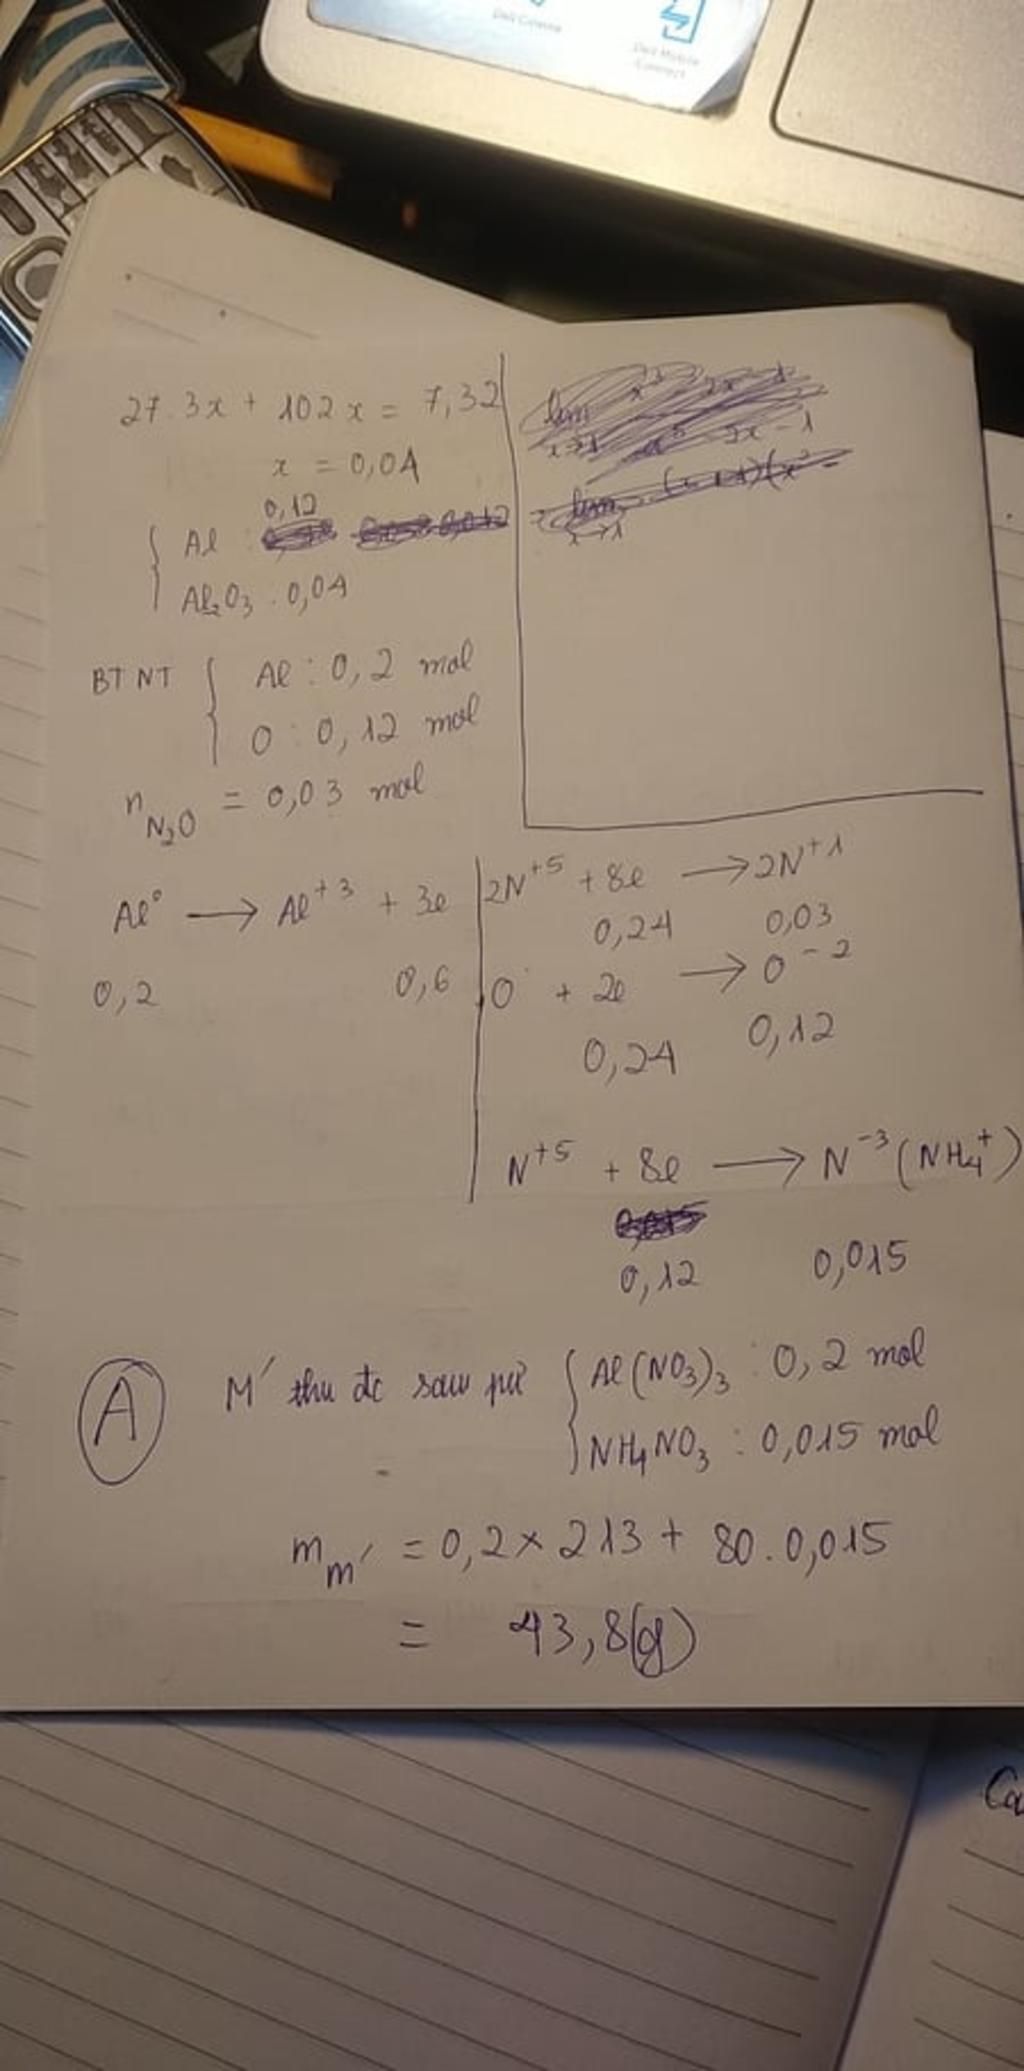 Dell Cinema
Dell Mobile
Connect
27.3x + 102x = 7,32
x = 0,04
0,12
Al :
Al₂O₃ : 0,04
BTNT { Al : 0,2 mol
O : 0,12 mol
n N₂O = 0,03 mol
Al⁰ → Al⁺³ + 3e
0,2 0,6
2N⁺⁵ + 8e → 2N⁺¹
0,24 0,03
O + 2e → O⁻²
0,24 0,12
N⁺⁵ + 8e → N⁻³ (NH₄⁺)
0,12 0,015
A
M' thu đc sau pứ { Al(NO₃)₃ : 0,2 mol
NH₄NO₃ : 0,015 mol
m m' = 0,2 × 213 + 80.0,015
= 43,8(g)